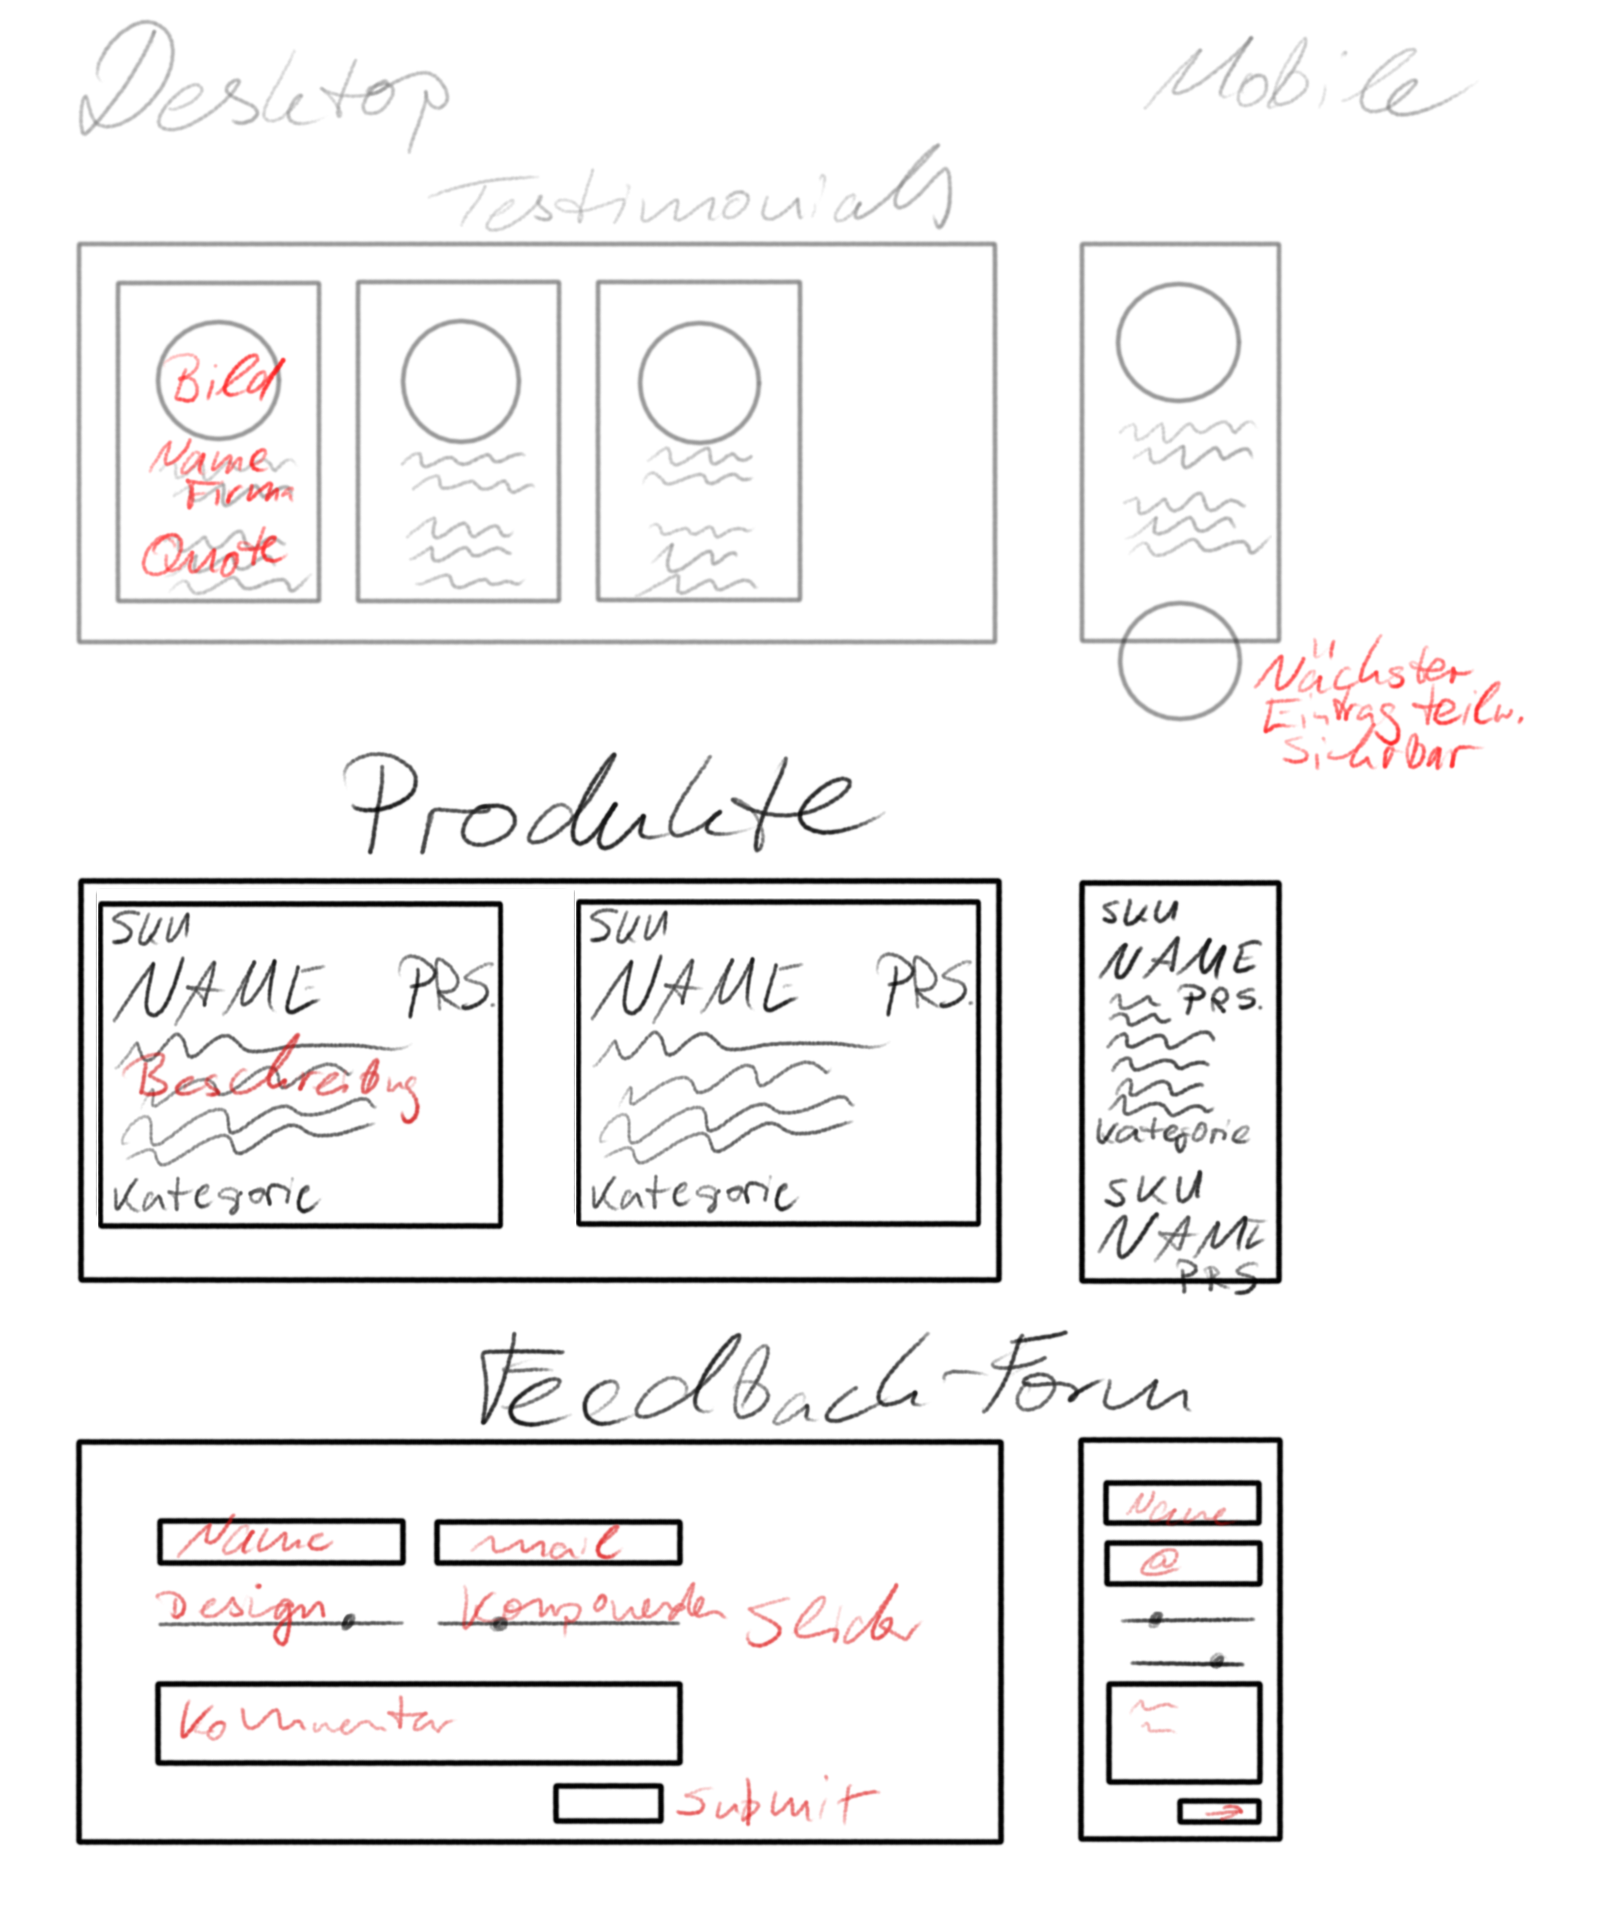 Desktop
Mobile
Testimonials
Bild
Name
Firma
Quote
Nächster
Eintrag teilw.
sichtbar
Produkte
SKU
NAME PRS.
Beschreibung
Kategorie
SKU
NAME PRS.
Kategorie
SKU
NAME
PRS.
Kategorie
SKU
NAME
PRS
Feedback-Form
Name mail
Design Komponenten Slider
Kommentar
Submit
Name
@